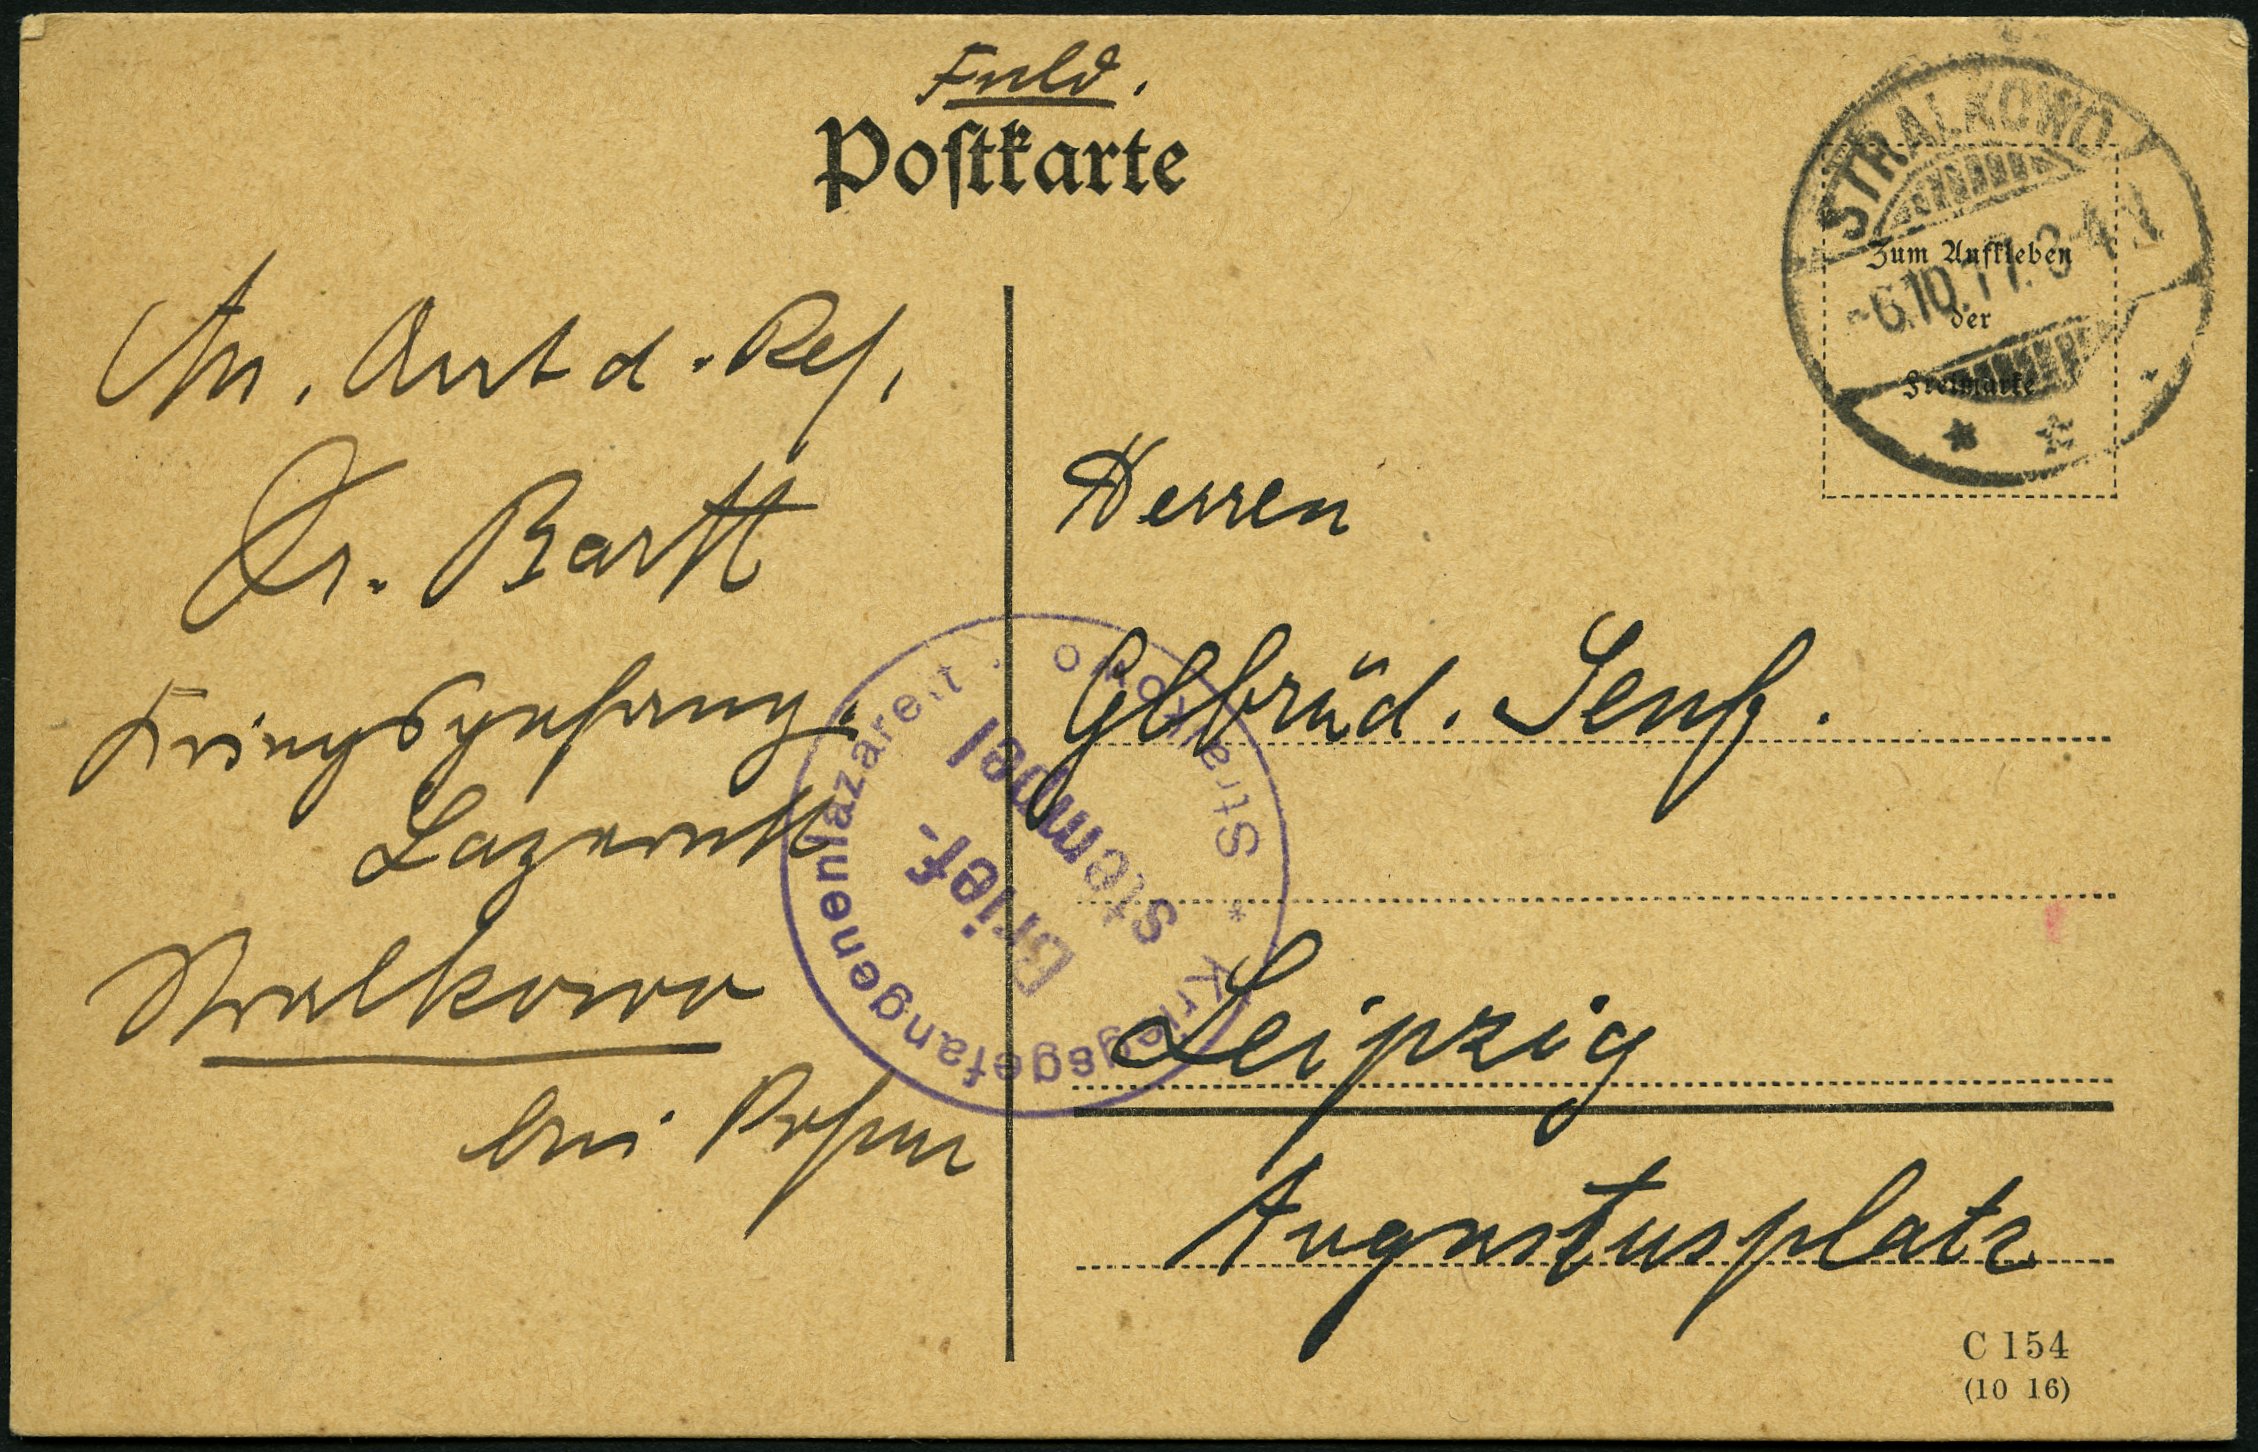 Feld.
Postkarte
STRALKOWO
-6.10.17. 3-4 N
Zum Aufkleben
der
Freimarke
An. Arzt d. Res.
Dr. Bartt
Kriegsgefang.
Lazarett
Stralkowo
bei Posen
* Kriegsgefangenenlazarett. Stralkowo
Brief-
stempel
Herren
Gebrüd. Senf.
Leipzig
Augustusplatz
C 154
(10 16)